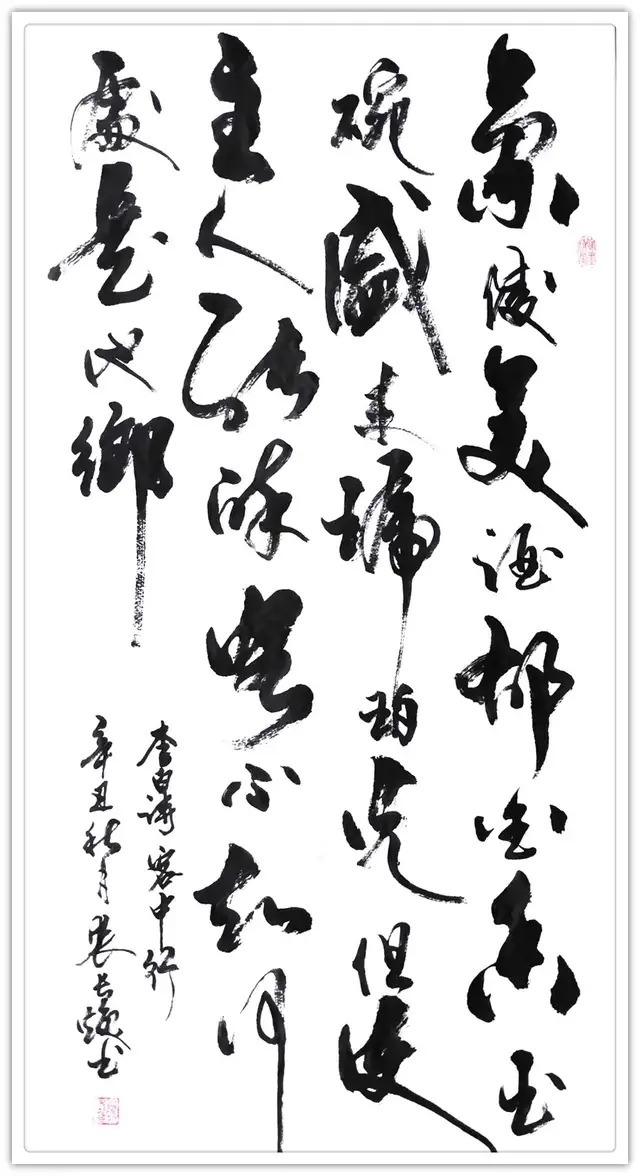 蘭陵美酒郁金香玉
碗盛来琥珀光但使
主人能醉客不知何
處是他鄉
李白詩客中行
辛丑秋月長书